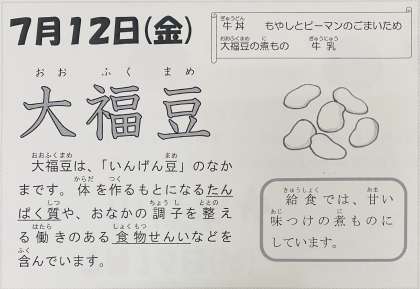 7月12日(金)
牛丼 もやしとピーマンのごまいため
大福豆の煮もの 牛乳
大福豆
大福豆は、「いんげん豆」のなか
まです。体を作るもとになるたん
ぱく質や、おなかの調子を整え
る働きのある食物せんいなどを
含んでいます。
給食では、甘い
味つけの煮ものに
しています。